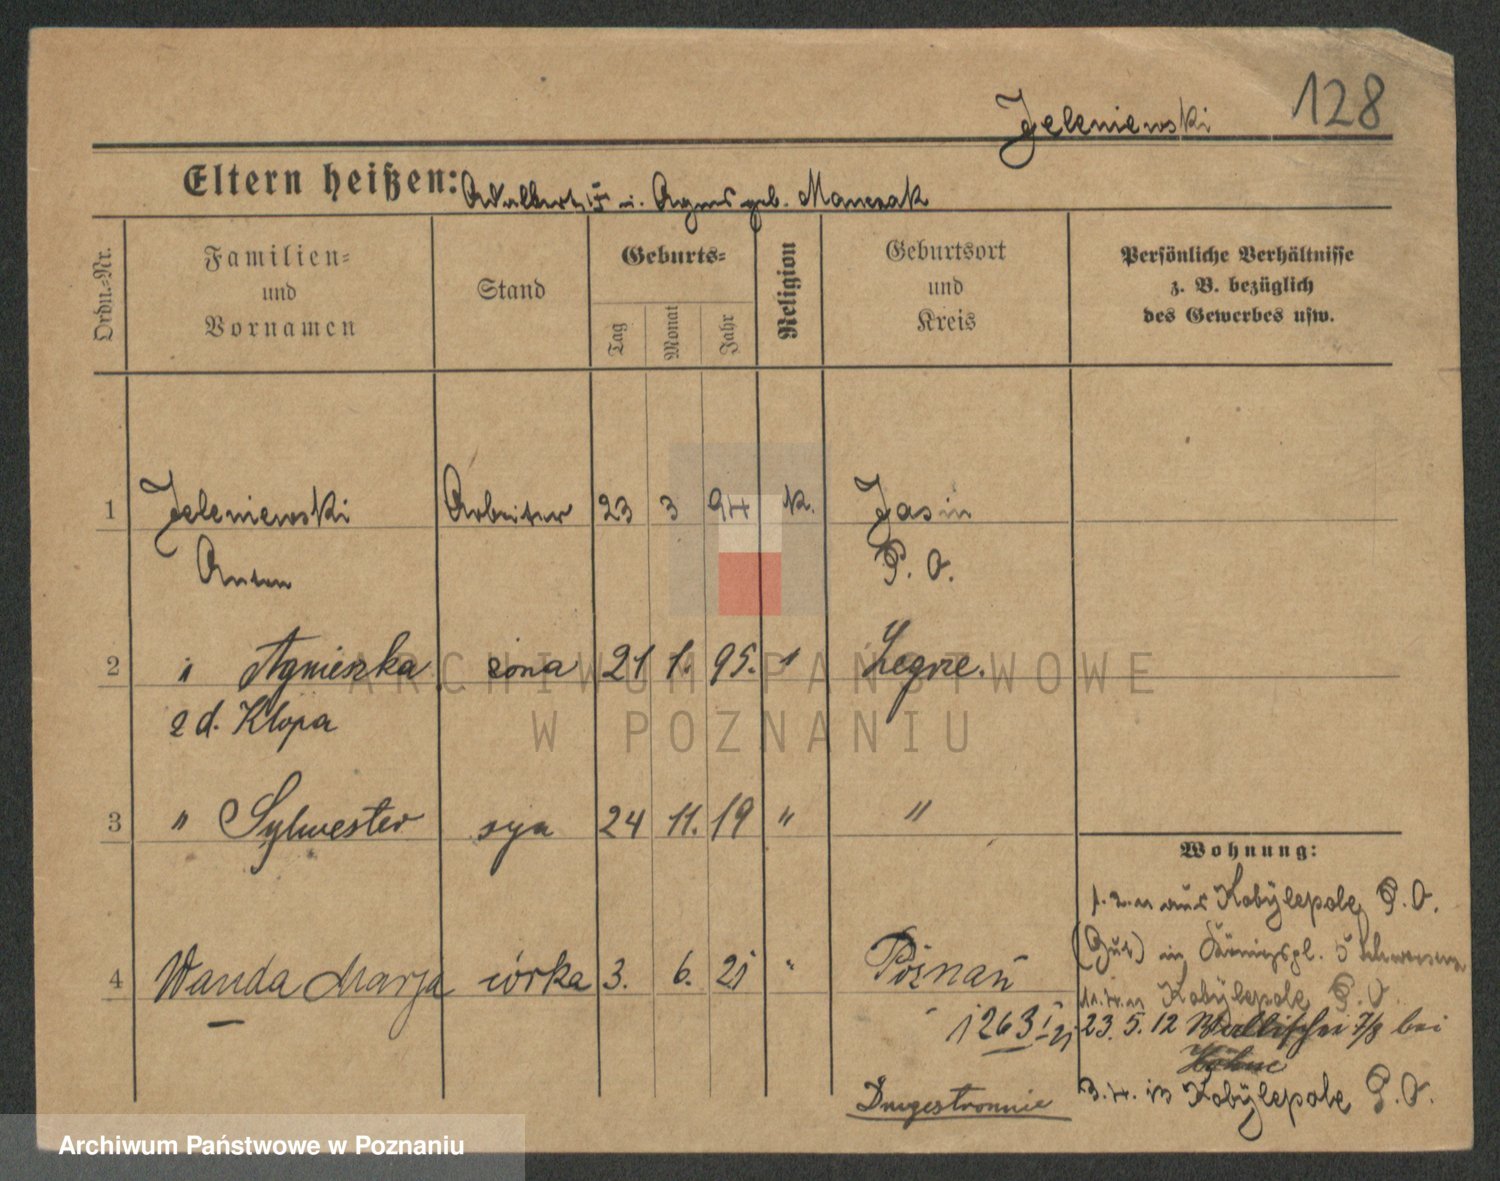 128
Jeleniewski
Eltern heißen: Adalbert J. u. Agnes geb. Manczak
Ordn.-Nr.
Familien- und Vornamen
Stand
Geburts-
Tag
Monat
Jahr
Religion
Geburtsort und Kreis
Persönliche Verhältnisse
z. B. bezüglich
des Gewerbes usw.
1 Jeleniewski Arbeiter 23 3 94 k. Jasin
Anton P. O.
2 " Agnieszka żona 21 1. 95. " Żegrze.
z d. Kłopa
3 " Sylwester syn 24 11. 19 " "
4 Wanda Marja córka 3. 6. 21 " Poznań
1263
Drugostronnie
Wohnung:
aus Kobylepole P. O.
(Gut) in
Kobylepole P. O.
23. 5. 12 Wallischei 7/8 bei
Höhne
3. 4. 13 Kobylepole P. O.
ARCHIWUM PAŃSTWOWE
W POZNANIU
Archiwum Państwowe w Poznaniu